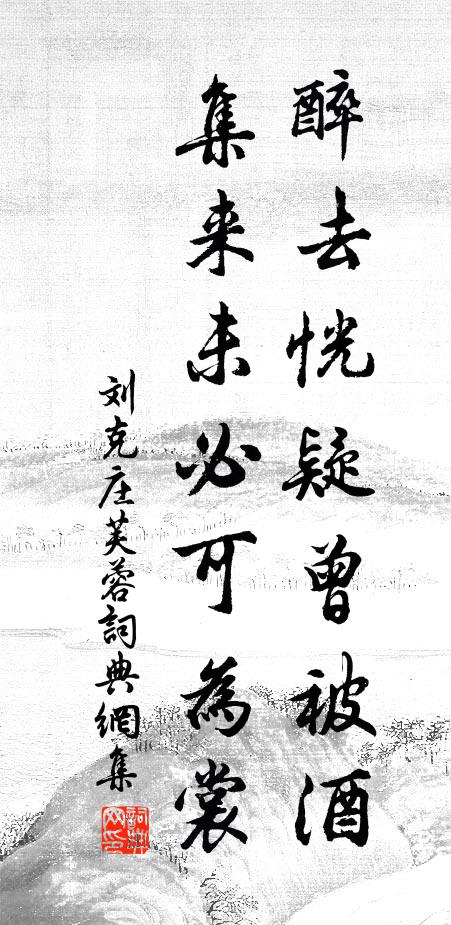 醉去恍疑曾被酒
集来未必可為裳
刘克庄芙蓉詞典網集
詞典网印